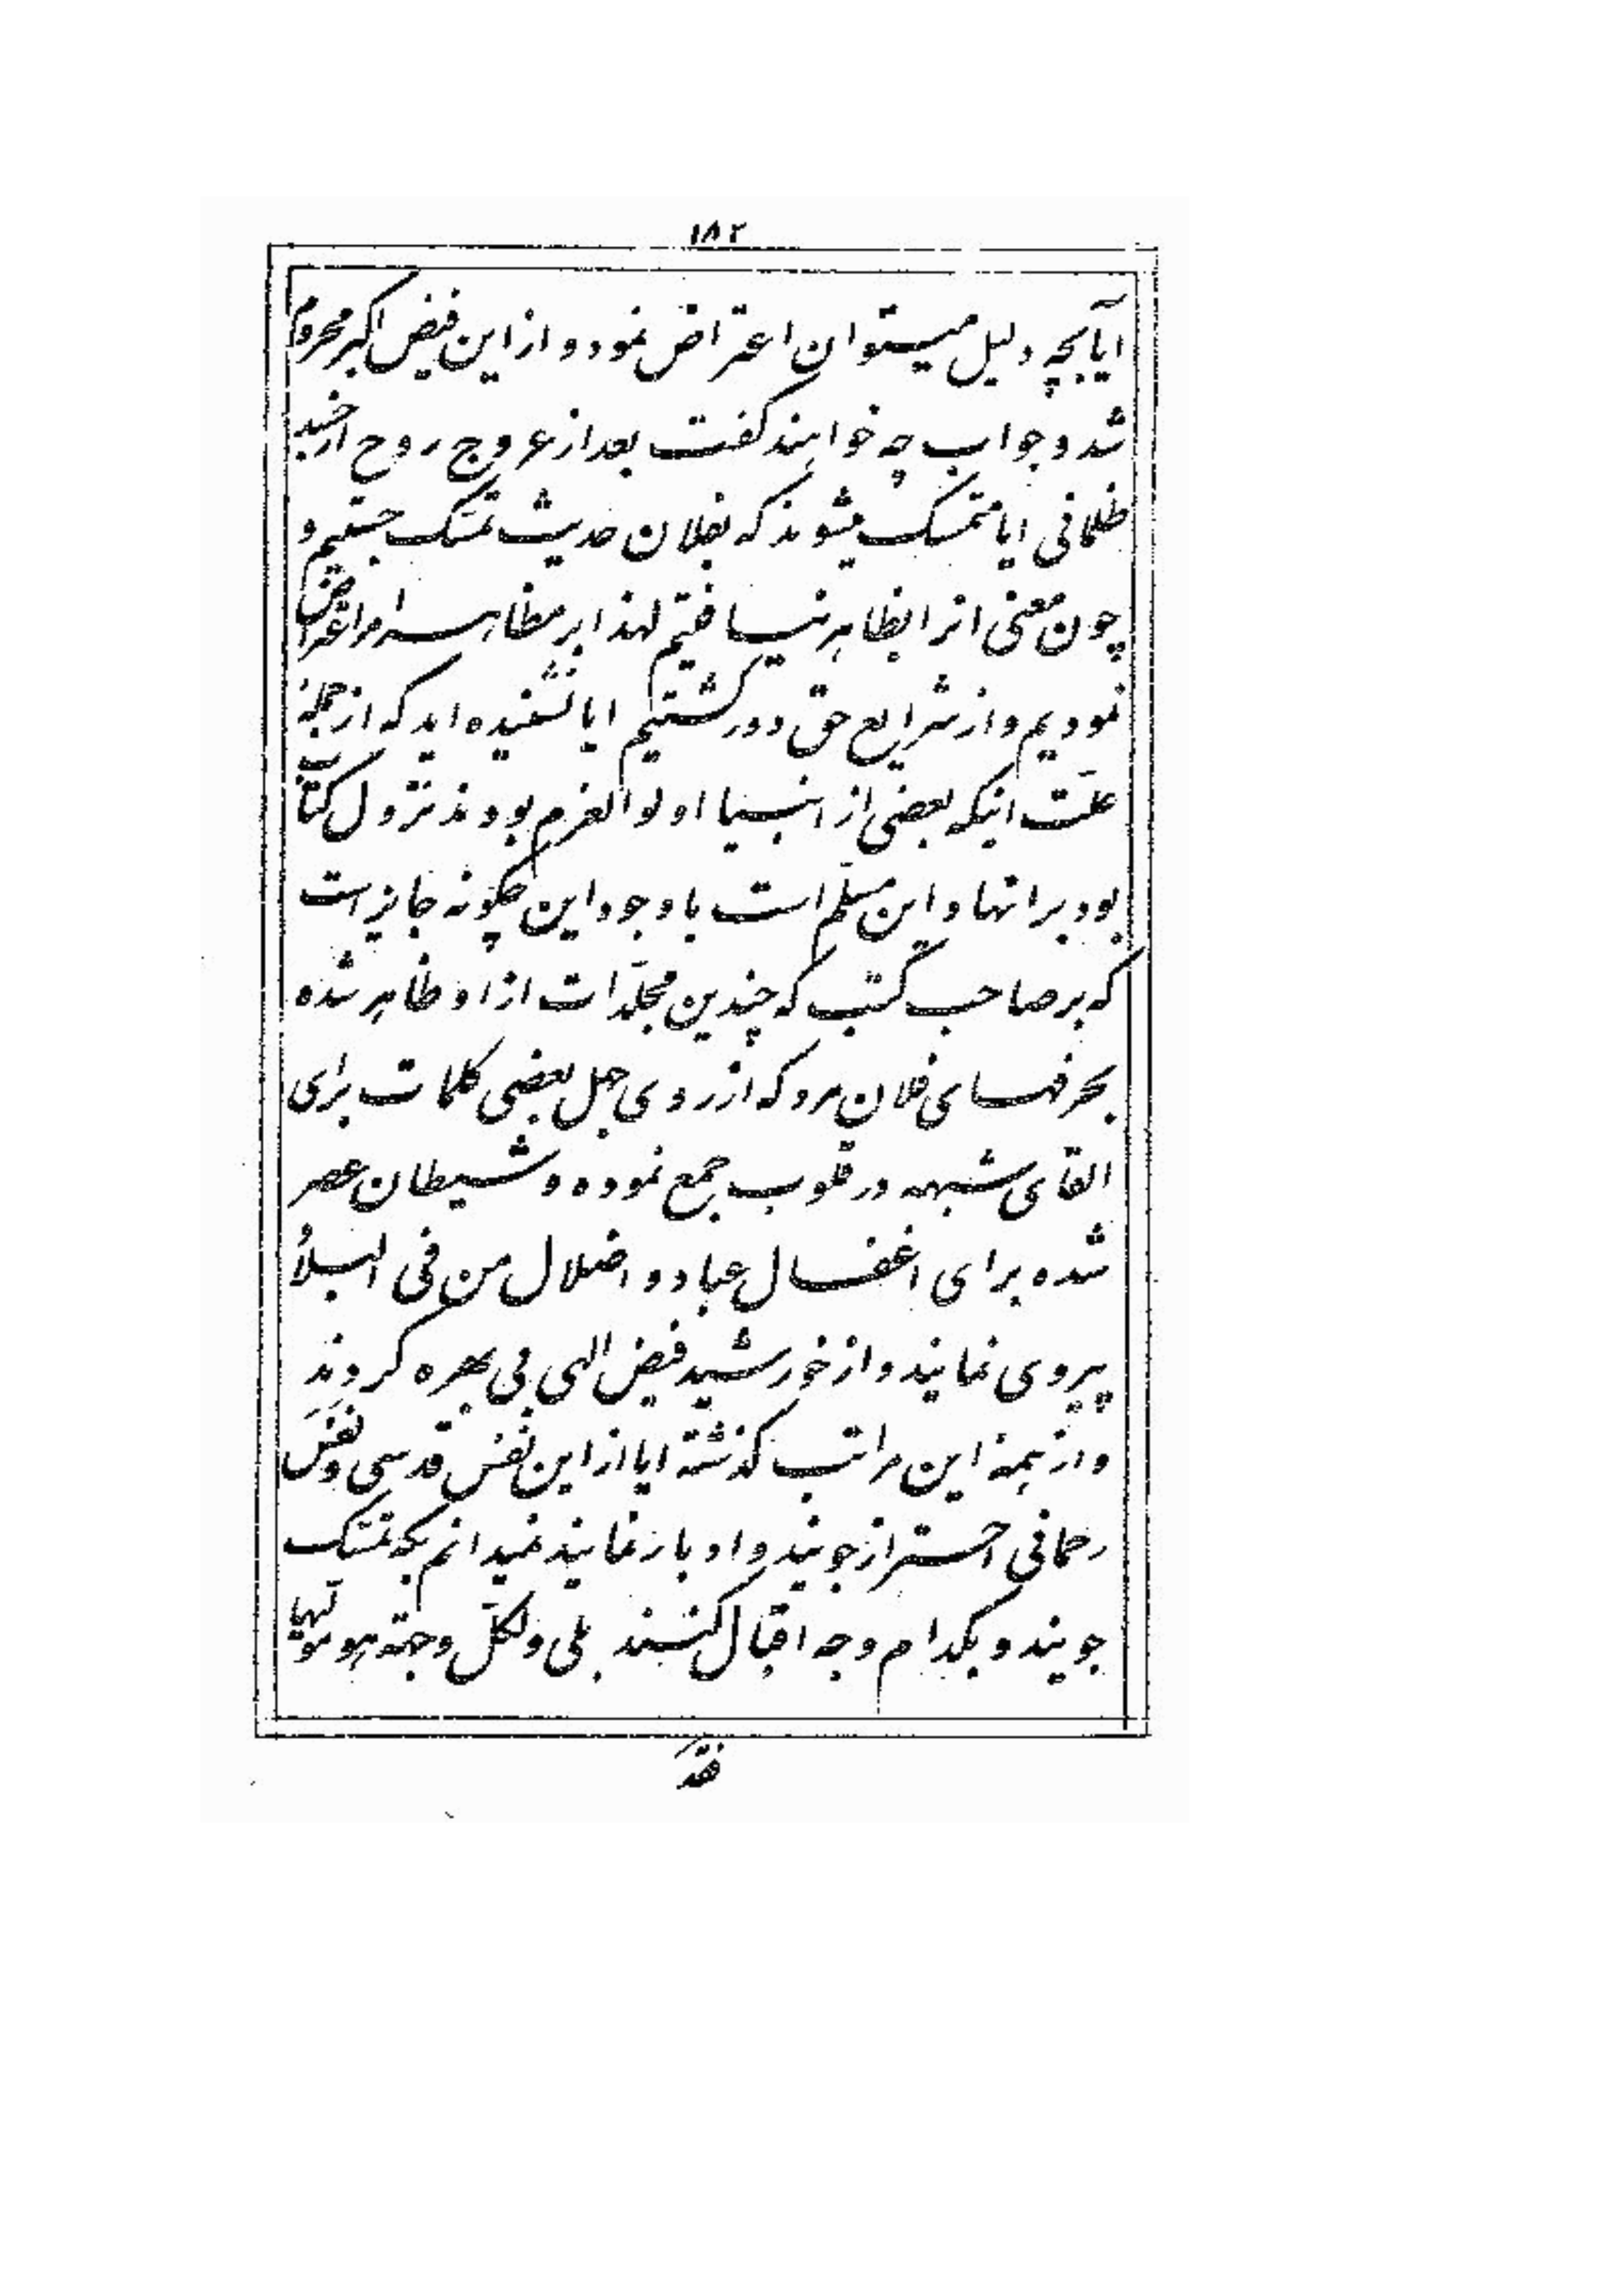 ١٨٢
ایا بچه دلیل میتوان اعتراض نمود و از این فیض اکبر محروم
شد و جواب چه خواهند گفت بعد از عروج روح از جسد
ظلمانی ایا متمسک میشوند که بفلان حدیث تمسّک جستیم و
چون معنی انرا بظاهر نیافتیم لهذا بر مظاهر امر اعتراض
نمودیم و از شرایع حق دور گشتیم ایا نشنیده اید که از جمله
علّت اینکه بعضی از انبیا اولوالعزم بودند نزول کتاب
بود برانها و این مسلّم است با وجود این چگونه جایز است
که بر صاحب کتب که چندین مجلّدات از او ظاهر شده
بحرفهای فلان مرد که از روی جهل بعضی کلمات برای
القای شبهه در قلوب جمع نموده و شیطان عصر
شده برای اغفال عباد و اضلال من فی البلاد
پیروی نمایند و از خورشید فیض الهی بی بهره گردند
و از همهٔ این مراتب گذشته ایا از این نفس قدسی و نفَس
رحمانی احتراز جویند و ادبار نمایند نمیدانم بکه تمسّک
جویند و بکدام وجه اقبال کنند بلی و لکلّ وجهة هو مولّیها
فقد